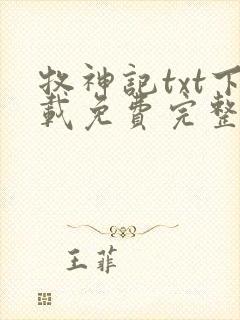 牧神記txt下
載免費完整
王菲